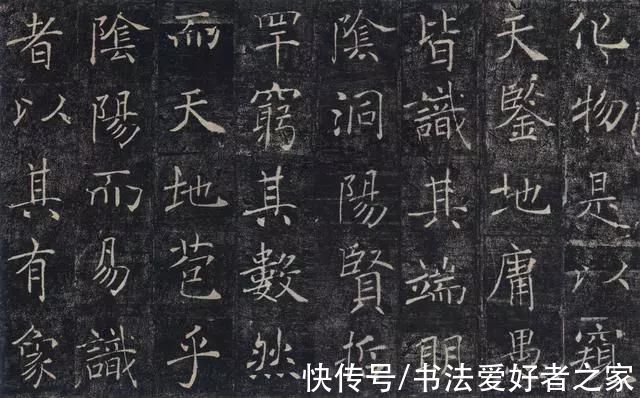 化物是以窺
天鑒地庸愚
皆識其端明
陰洞陽賢哲
罕窮其數然
而天地苞乎
陰陽而易識
者以其有象
快传号/书法爱好者之家